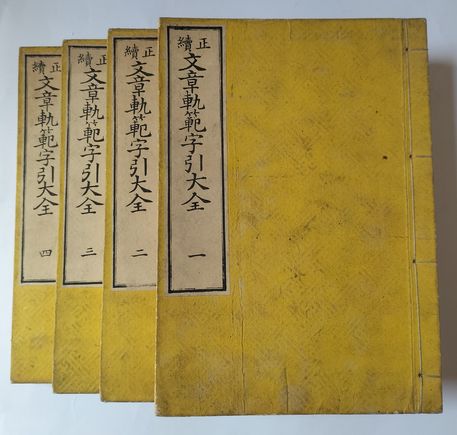 正續 文章軌範字引大全 一
正續 文章軌範字引大全 二
正續 文章軌範字引大全 三
正續 文章軌範字引大全 四